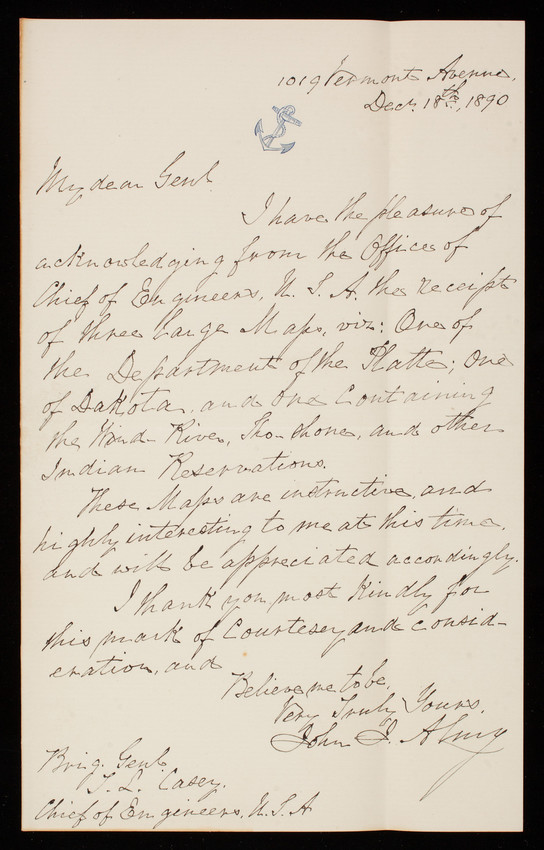 1019 Vermont Avenue,
Decr. 18th, 1890
My dear Genl
I have the pleasure of
acknowledging from the Office of
Chief of Engineers, U. S. A. the receipt
of three large Maps, viz: One of
the Department of the Platte; One
of Dakota, and one Containing
the Wind River, Shoshone, and other
Indian Reservations.
These Maps are instructive, and
highly interesting to me at this time,
and will be appreciated accordingly.
I thank you most kindly for
this mark of Courtesey and consid-
eration, and
Believe me to be,
Very Truly Yours,
John J. Almy
Brig. Genl.
T. L. Casey,
Chief of Engineers, U. S. A